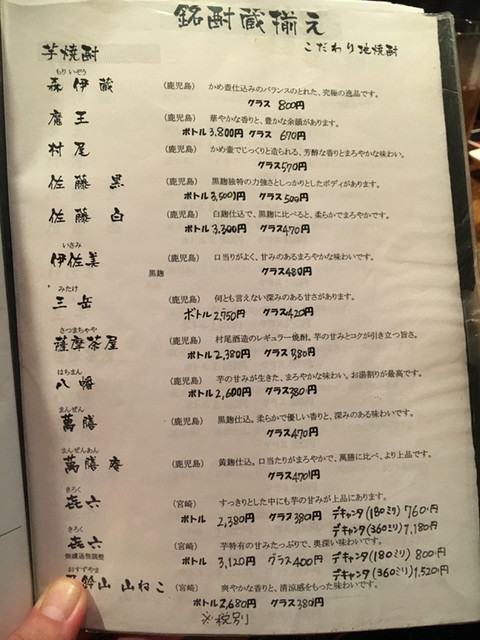 銘酎蔵揃え
こだわり地焼酎
芋焼酎
もりいぞう
森伊蔵 (鹿児島) かめ壺仕込みのバランスのとれた、究極の逸品です。
グラス 800円
魔王 (鹿児島) 華やかな香りと、豊かな余韻があります。
ボトル 3,800円 グラス 670円
村尾 (鹿児島) かめ壺でじっくりと造られる、芳醇な香りとまろやかな味わい。
グラス570円
佐藤黒 (鹿児島) 黒麹独特の力強さとしっかりとしたボディがあります。
ボトル 3,500円 グラス 500円
佐藤白 (鹿児島) 白麹仕込で、黒麹に比べると、柔らかでまろやかです。
ボトル 3,300円 グラス470円
いさみ
伊佐美 (鹿児島) 口当りがよく、甘みのあるまろやかな味わいです。
黒麹 グラス480円
みたけ
三岳 (鹿児島) 何とも言えない深みのある甘さがあります。
ボトル2,750円 グラス420円
さつまちゃや
薩摩茶屋 (鹿児島) 村尾酒造のレギュラー焼酎。芋の甘みとコクが引き立つ旨さ。
ボトル 2,380円 グラス 380円
はちまん
八幡 (鹿児島) 芋の甘みが生きた、まろやかな味わい。お湯割りが最高です。
ボトル 2,600円 グラス380円
まんぜん
萬膳 (鹿児島) 黒麹仕込。柔らかで優しい香りと、深みのある味わいです。
グラス470円
まんぜんあん
萬膳庵 (鹿児島) 黄麹仕込。口当たりがまろやかで、萬膳に比べ、より上品です。
グラス470円
きろく
㐂六 (宮崎) すっきりとした中にも芋の甘みが上品にあります。
ボトル 2,380円 グラス380円 デキャンタ(180ミリ) 760円
デキャンタ(360ミリ) 1,180円
きろく
㐂六 (宮崎) 芋特有の甘みたっぷりで、奥深い味わいです。
無濾過 ボトル 3,120円 グラス400円 デキャンタ(180ミリ) 800円
デキャンタ(360ミリ) 1,520円
おすずやま
鈴山 山ねこ (宮崎) 爽やかな香りと、清涼感をもった味わいです。
ボトル 2,680円 グラス380円
※税別